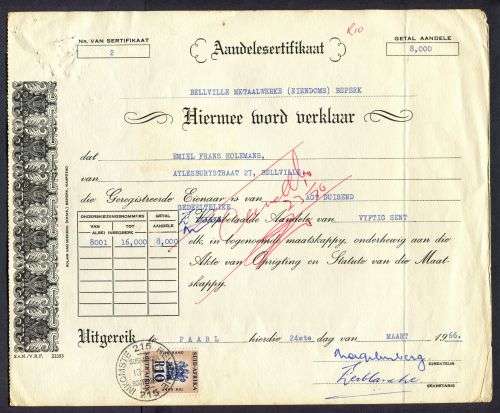 No. VAN SERTIFIKAAT
2
R10
Aandelesertifikaat
GETAL AANDELE
8,000
BELLVILLE METAALWERKE (EIENDOMS) BEPERK
Hiermee word verklaar
dat EMIEL FRANS HOLEMANS,
van AYLESBURYSTRAAT 27, BELLVILLE,
die Geregistreerde Eienaar is van AGT DUISEND
GEDEELTELIKE
Volbetaalde Aandele van VYFTIG SENT
ONDERSKEIDINGSNOMMERS GETAL
VAN TOT AANDELE
ALBEI INBEGREPE
8001 16,000 8,000
elk, in bogenoemde maatskappy, onderhewig aan die
Akte van Oprigting en Statute van die Maat-
skappy.
Uitgereik te PAARL hierdie 24ste dag van MAART 1966.
DIREKTEUR
SEKRETARIS
215
R10
215
S.A.N./V.R.F. 22353